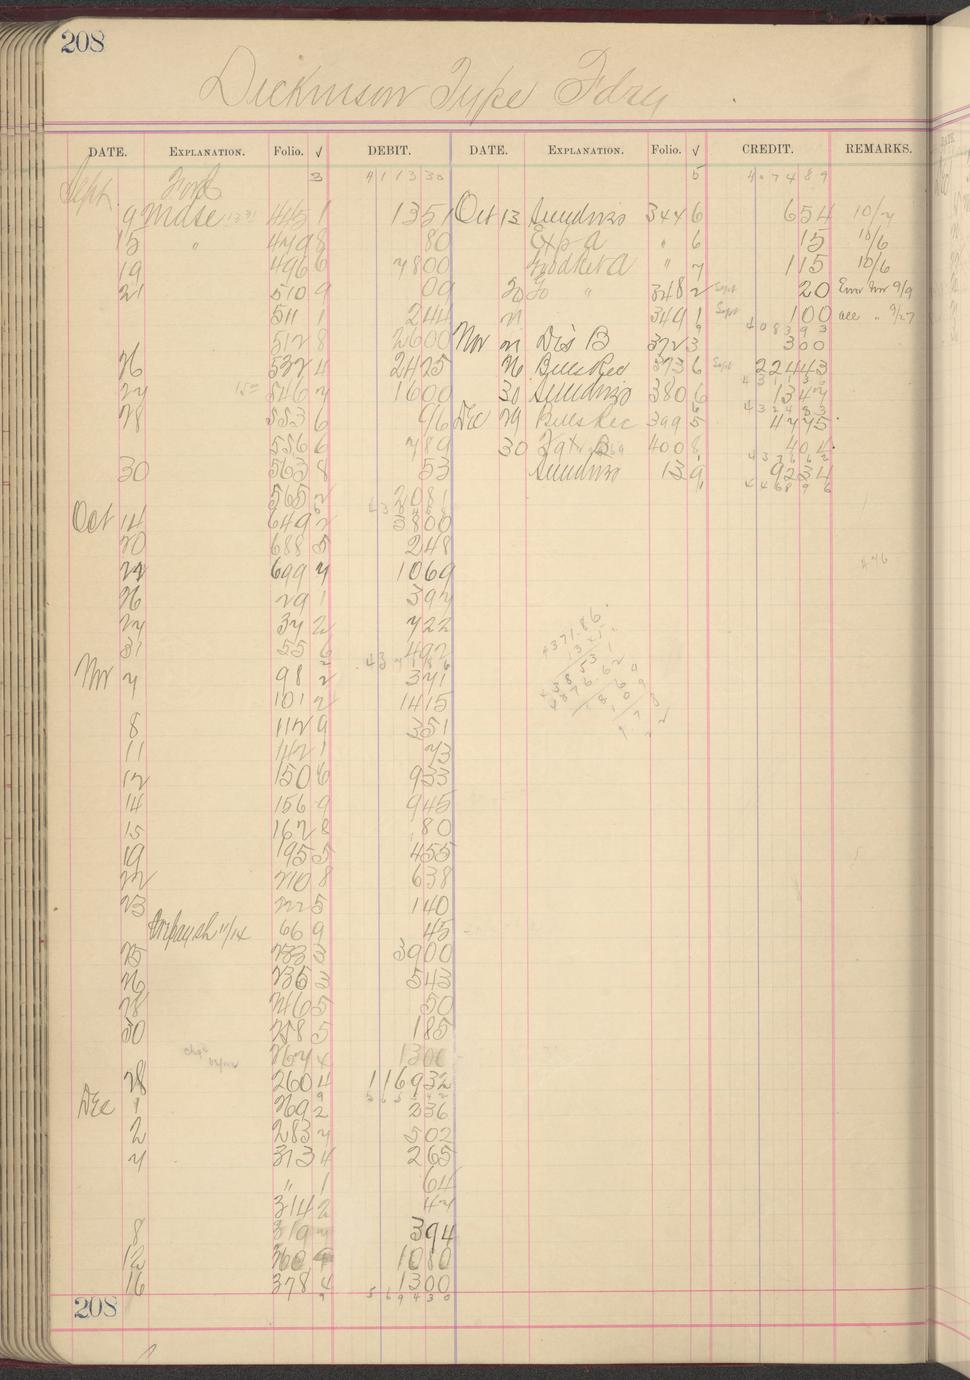 208
Dickinson Type Fdry
DATE. EXPLANATION. Folio. √ DEBIT. DATE. EXPLANATION. Folio. √ CREDIT. REMARKS.
Sept Ford 3 411330 5 407489
9 Mdse 445 1 1351 Oct 13 Sundries 344 6 654 10/7
15 " 479 8 80 Exp a " 6 15 10/6
19 496 6 7800 " 7 115 10/6
21 510 9 09 20 Do " 348 2 Sept 20 Error Inv 9/9
511 1 244 21 349 1 Sept 100 all " 9/27
408393
512 8 2600 Nov 21 Dis B 372 3 300
26 532 4 2425 26 Bills Rec 373 6 Sept 22443
27 546 7 1600 30 Sundries 380 6 1347
28 553 6 96 Dec 29 Bills Rec 399 5 4775
556 6 789 30 400 8 404
30 563 8 53 Sundries 13 9 9234
446896
565 2 2081
Oct 14 649 2 3800
20 688 5 248
476
22 699 7 1069
26 29 1 397
27 37 2 722
31 55 6 492
4371.86
437186
Nov 7 98 2 371
101 2 1415
8 112 9 351
11 142 1 73
12 150 6 933
14 156 9 945
15 162 8 80
19 195 5 455
22 210 8 638
23 222 5 140
11/14 66 9 45
25 233 3 3900
26 236 3 543
28 246 5 50
30 258 5 185
267 4 1300
28 260 4 116932
Dec 1 269 2 236
2 283 7 502
7 313 4 265
" 1 64
314 2 47
8 319 7 394
12 360 9 1080
16 378 4 1300
9 569430
208